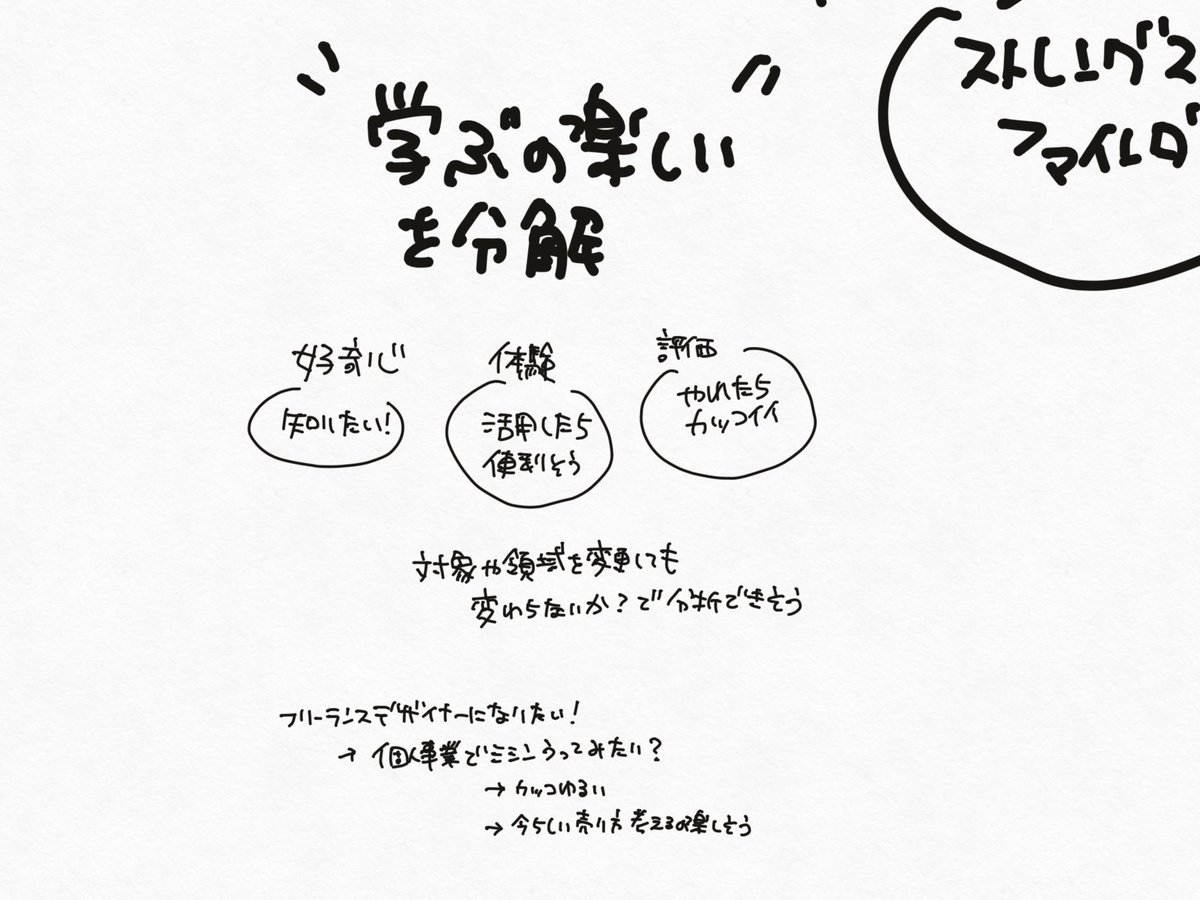 "学ぶの楽しい"
を分解
ストレングス
ファイルダ
好奇心
知りたい!
体験
活用したら
便利そう
評価
やれたら
カッコイイ
対象や領域を変更しても
変わらないか?で分析できそう
フリーランスデザイナーになりたい!
→ 個人事業でミシンうってみたい?
→ カッコゆるい
→ 今らしい売り方考えるの楽しそう